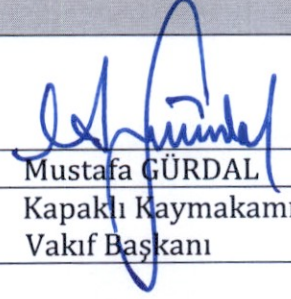 Mustafa GÜRDAL
Kapaklı Kaymakamı
Vakıf Başkanı